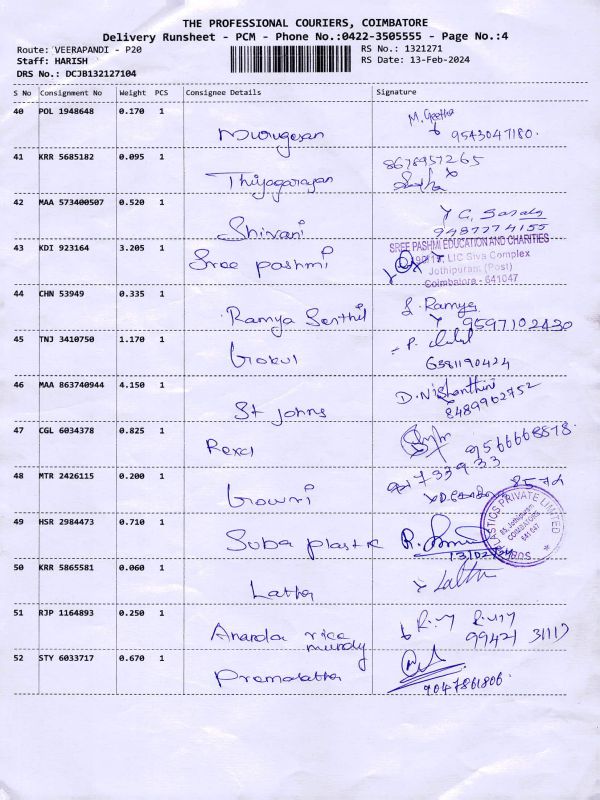 THE PROFESSIONAL COURIERS, COIMBATORE
Delivery Runsheet - PCM - Phone No.:0422-3505555 - Page No.:4
Route: VEERAPANDI - P20 RS No.: 1321271
Staff: HARISH RS Date: 13-Feb-2024
DRS No.: DCJB132127104
S No Consignment No Weight PCS Consignee Details Signature
40 POL 1948648 0.170 1
M. Geetha
Murugesan 9543047180.
41 KRR 5685182 0.095 1 8678957265
Thiyagarajan
42 MAA 573400507 0.520 1
Shivani 9487774155
43 KDI 923164 3.205 1 SREE PASHMI EDUCATION AND CHARITIES
Sree pashmi LIC Siva Complex
Jothipuram (Post)
Coimbatore - 641047
44 CHN 53949 0.335 1 S. Ramya
Ramya Senthil 9597102430
45 TNJ 3410750 1.170 1
Gokul 6381190424
46 MAA 863740944 4.150 1 D. Nishanthini
St Johns 8489902752
47 CGL 6034378 0.825 1
Rexci 9566668878.
48 MTR 2426115 0.200 1
Gowri 8574
49 HSR 2984473 0.710 1
Suba plastic 13/02/24
PLASTICS PRIVATE LIMITED
Jothipuram
COIMBATORE
641 047
SUBA
50 KRR 5865581 0.060 1
Latha Latha
51 RJP 1164893 0.250 1
Ananda rice 99421 31117
mundy
52 STY 6033717 0.670 1
Premalatha 9047861806.